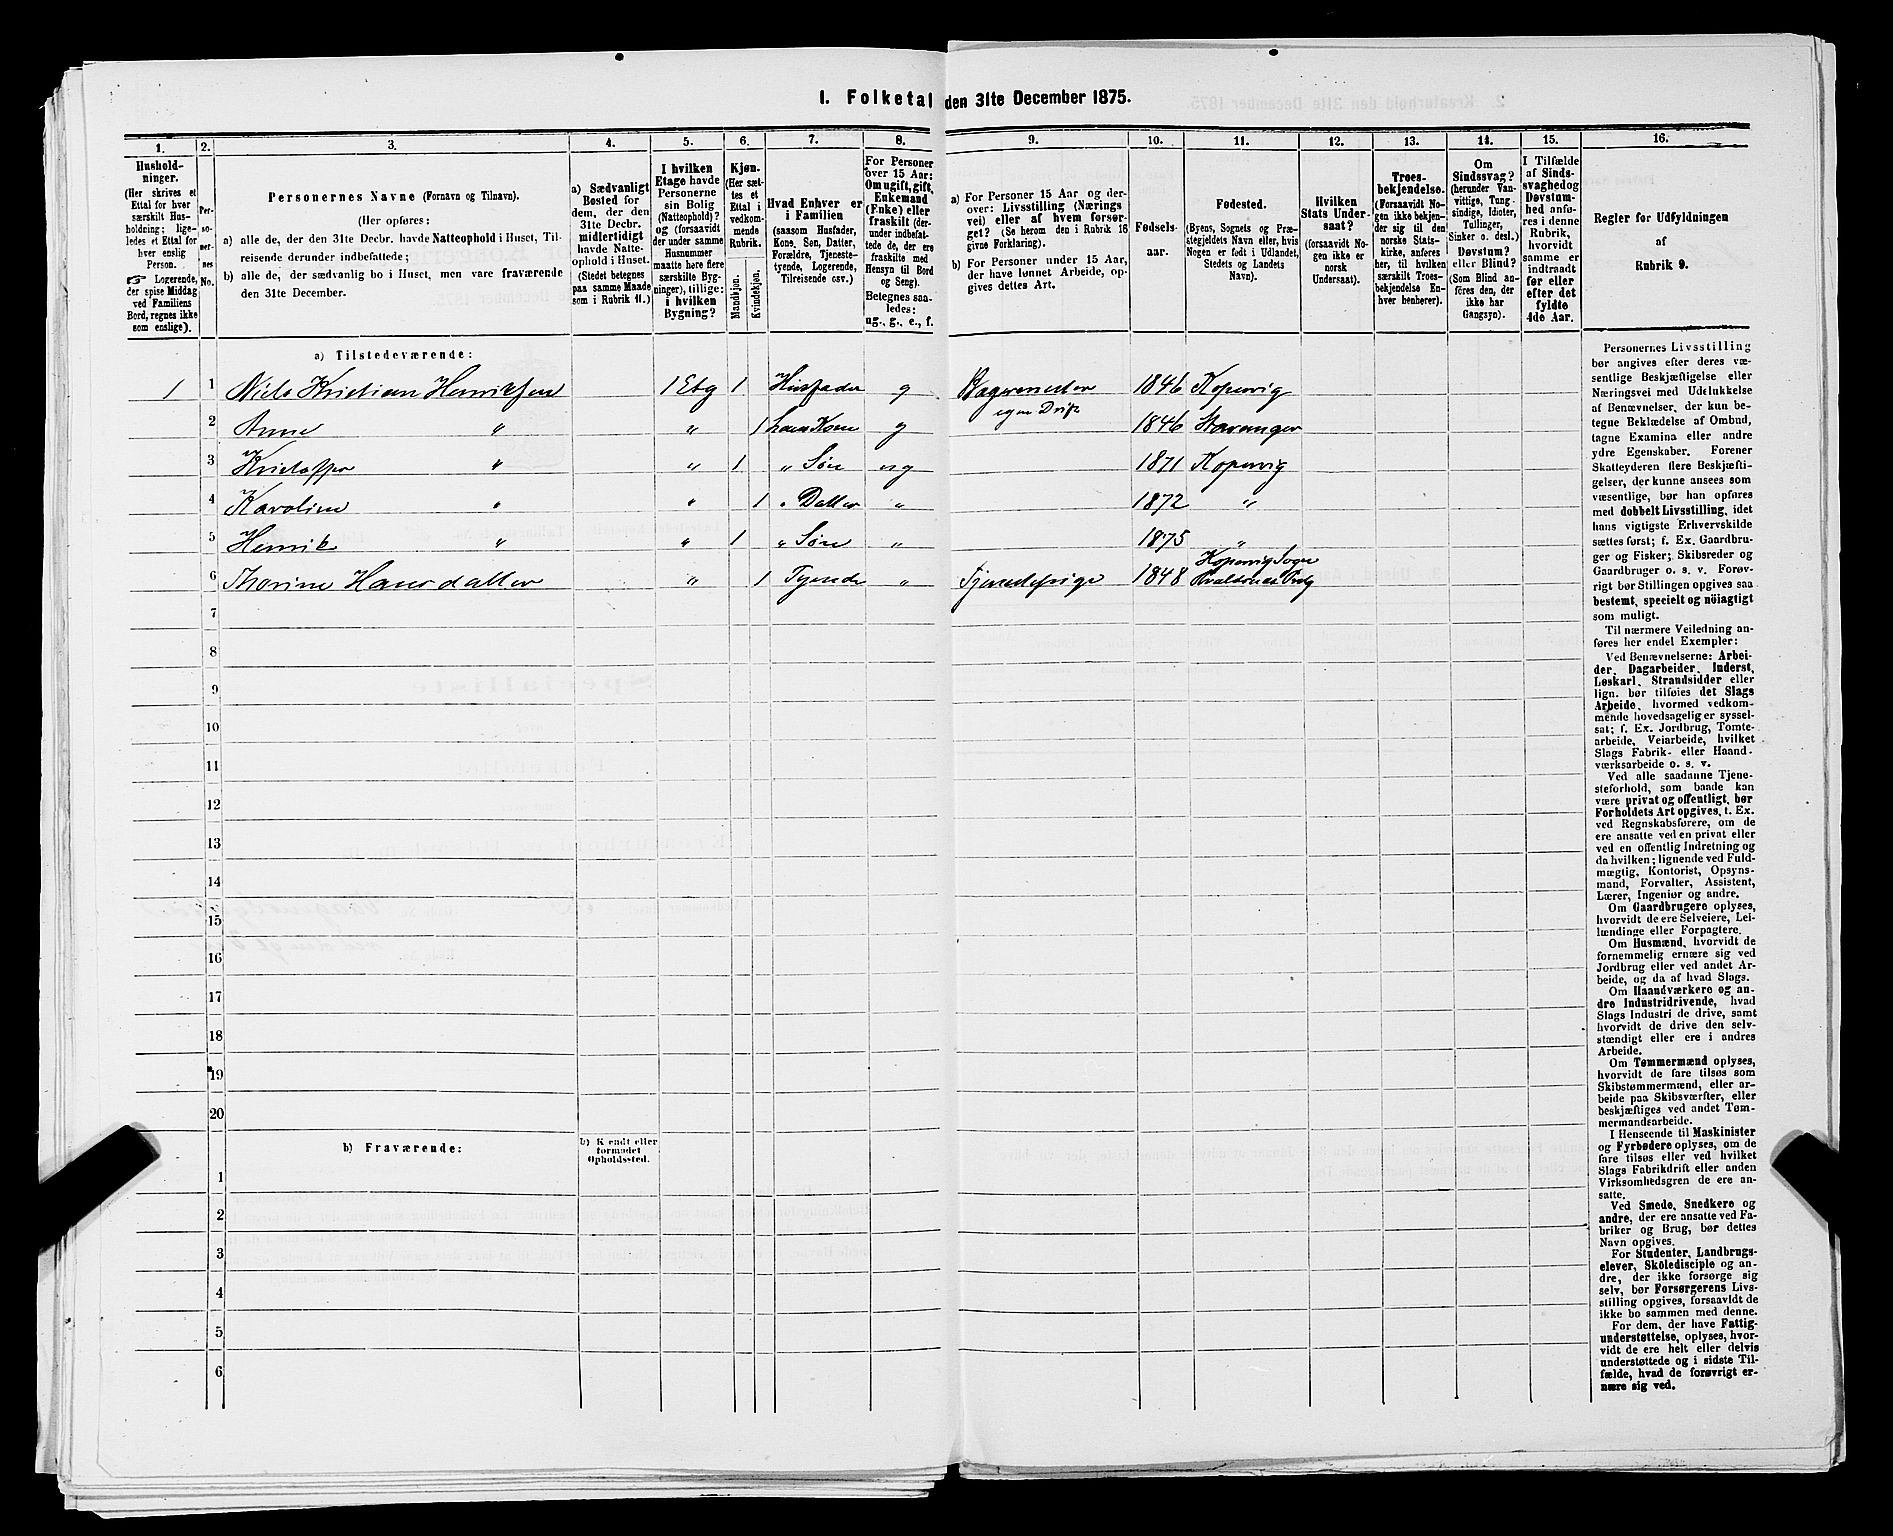 1. Folketal den 31te December 1875.
1. 2. 3. 4. 5. 6. 7. 8. 9. 10. 11. 12. 13. 14. 15. 16.
Hushold-
ninger.
(Her skrives et
Ettal for hver
særskilt Hus-
holdning; lige-
ledes et Ettal for
hver enslig
Person.
☞ Logerende,
der spise Middag
ved Familiens
Bord, regnes ikke
som enslige).
Per-
so-
ner-
nes
No.
Personernes Navne (Fornavn og Tilnavn).
(Her opføres:
a) alle de, der den 31te Decbr. havde Natteophold i Huset, Til-
reisende derunder indbefattede;
b) alle de, der sædvanlig bo i Huset, men vare fraværende
den 31te December.
a) Sædvanligt
Bosted for
dem, der den
31te Decbr.
midlertidigt
havde Natte-
ophold i Huset.
(Stedet betegnes
paa samme Maade
som i Rubrik 11.)
I hvilken
Etage havde
Personerne
sin Bolig
(Natteophold)?
og (forsaavidt
der under samme
Husnummer
maatte høre flere
særskilte Byg-
ninger), tillige:
i hvilken
Bygning?
Kjøn.
(Her sæt-
tes et
Ettal i
vedkom-
mende
Rubrik.
Mandkjøn.
Kvindekjøn.
Hvad Enhver er
i Familien
(saasom Husfader,
Kone, Søn, Datter,
Forældre, Tjeneste-
tyende, Logerende,
Tilreisende osv.).
For Personer
over 15 Aar:
Om ugift, gift,
Enkemand
(Enke) eller
fraskilt (der-
under indbefat-
tede de, der ere
fraskilte med
Hensyn til Bord
og Seng).
Betegnes saa-
ledes:
ug., g., e., f.
a) For Personer 15 Aar og der-
over: Livsstilling (Nærings
vei) eller af hvem forsør-
get? (Se herom den i Rubrik 16
givne Forklaring).
b) For Personer under 15 Aar,
der have lønnet Arbeide, op-
gives dettes Art.
Fødsels-
aar.
Fødested.
(Byens, Sognets og Præ-
stegjeldets Navn eller, hvis
Nogen er født i Udlandet,
Stedets og Landets
Navn).
Hvilken
Stats Under-
saat?
(forsaavidt No-
gen ikke er
norsk
Undersaat).
Troes-
bekjendelse.
(Forsaavidt No-
gen ikke bekjen-
der sig til den
norske Stats-
kirke, anføres
her, til hvilken
særskilt Troes-
bekjendelse En-
hver henhører).
Om
Sindssvag?
(herunder Van-
vittige, Tung-
sindige, Idioter,
Tullinger,
Sinker o. desl.)
Døvstum?
eller Blind?
(Som Blind an-
føres den, der
ikke har
Gangsyn).
I Tilfælde
af Sinds-
svaghed og
Døvstum-
hed anfø-
res i denne
Rubrik,
hvorvidt
samme er
indtraadt
før eller
efter det
fyldte
4de Aar.
Regler for Udfyldningen
af
Rubrik 9.
a) Tilstedeværende:
1 1 Niels Kristian Henriksen 1 Etg 1 Husfader g Bagermester egen Drift 1846 Kopervig
2 Anne " " 1 hans Kone g 1846 Stavanger
3 Kristoffer " " 1 " Søn ug 1871 Kopervig
4 Karoline " " 1 " Datter " 1872 "
5 Henrik " " 1 " Søn " 1875 "
6 Thorine Hansdatter " 1 Tyende " Tjenestepige 1848 Kopervig Sogn
7
8
9
10
11
12
13
14
15
16
17
18
19
20
b) Fraværende:
b) Kjendt eller
formodet
Opholdssted.
1
2
3
4
5
6
Personernes Livsstilling
bør angives efter deres væ-
sentlige Beskjæftigelse eller
Næringsvei med Udelukkelse
af Benævnelser, der kun be-
tegne Beklædelse af Ombud,
tagne Examina eller andre
ydre Egenskaber. Forener
Skatteyderen flere Beskjæfti-
gelser, der kunne ansees som
væsentlige, bør han opføres
med dobbelt Livsstilling, idet
hans vigtigste Erhvervskilde
sættes først; f. Ex. Gaardbru-
ger og Fisker; Skibsreder og
Gaardbruger o. s. v. Forøv-
rigt bør Stillingen opgives saa
bestemt, specielt og nöiagtigt
som muligt.
Til nærmere Veiledning an-
føres her endel Exempler:
Ved Benævnelserne: Arbei-
der, Dagarbeider, Inderst,
Løskarl, Strandsidder eller
lign. bør tilføies det Slags
Arbeide, hvormed vedkom-
mende hovedsagelig er syssel-
sat; f. Ex. Jordbrug, Tomte-
arbeide, Veiarbeide, hvilket
Slags Fabrik- eller Haand-
værksarbeide o. s. v.
Ved alle saadanne Tjene-
steforhold, som baade kan
være privat og offentligt, bør
Forholdets Art opgives, t. Ex.
ved Regnskabsførere, om de
ere ansatte ved en privat eller
ved en offentlig Indretning og
da hvilken; lignende ved Fuld-
mægtig, Kontorist, Opsyns-
mand, Forvalter, Assistent,
Lærer, Ingeniør og andre.
Om Gaardbrugere oplyses,
hvorvidt de ere Selveiere, Lei-
lændinge eller Forpagtere.
Om Husmænd, hvorvidt de
fornemmelig ernære sig ved
Jordbrug eller ved andet Ar-
beide, og da af hvad Slags.
Om Haandværkere og an-
dre Industridrivende, hvad
Slags Industri de drive, samt
hvorvidt de drive den selv-
stændigt eller ere i andres
Arbeide.
Om Tømmermænd oplyses,
hvorvidt de fare tilsøs som
Skibstømmermænd, eller ar-
beide paa Skibsværfter, eller
beskjæftiges ved andet Tøm-
mermandsarbeide.
I Henseende til Maskinister
og Fyrbødere oplyses, om de
fare tilsøs eller ved hvilket
Slags Fabrikdrift eller anden
Virksomhedsgren de ere an-
satte.
Ved Smede, Snedkere og
andre, der ere ansatte ved Fa-
briker og Brug, bør dettes
Navn opgives.
For Studenter, Landbrugs-
elever, Skoledisciple og an-
dre, der ikke forsørge sig
selv, bør Forsørgerens Livs-
stilling opgives, forsaavidt de
ikke bo sammen med denne.
For dem, der have Fattig-
understøttelse, oplyses, hvor-
vidt de ere helt eller delvis
understøttede og i sidste Til-
fælde, hvad de forøvrigt er-
nære sig ved.